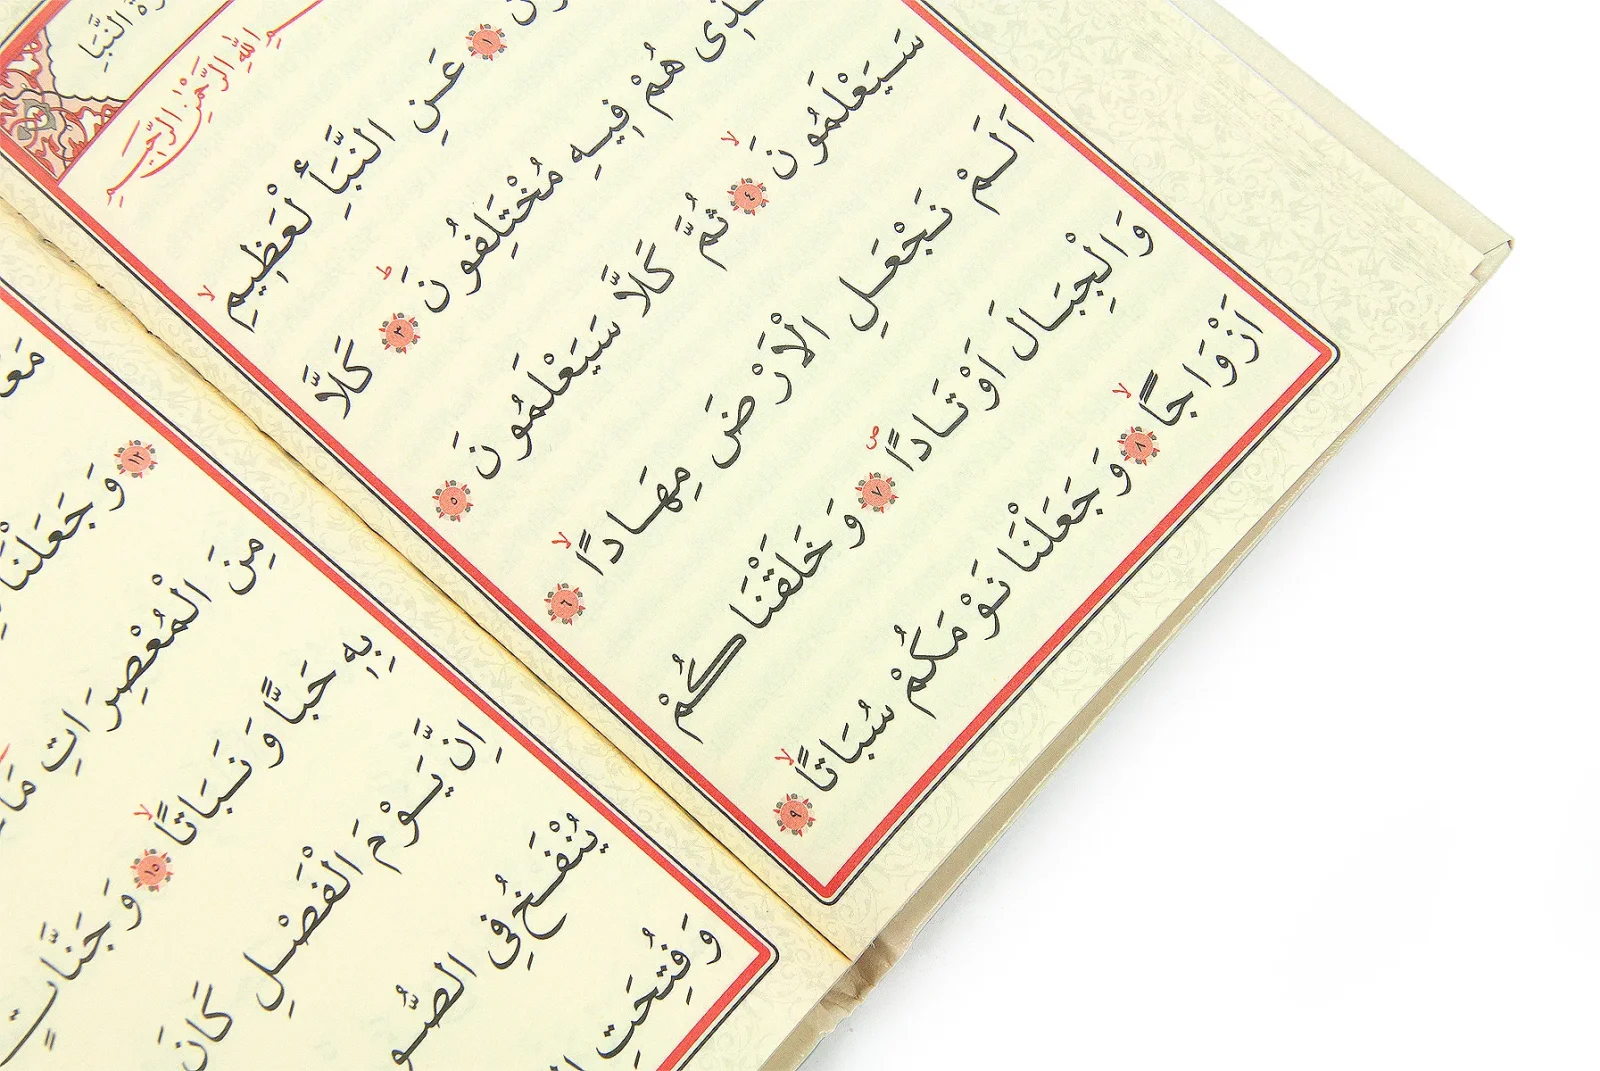 النَّبَأِ
اللهِ الرَّحْمٰنِ الرَّحِيمِ
١ عَنِ النَّبَأِ لْعَظِيمِۙ
هُمْ فِيهِ مُخْتَلِفُونَۜ ٣ كَلَّا
سَيَعْلَمُونَۙ ٤ ثُمَّ كَلَّا سَيَعْلَمُونَ ٥
اَلَمْ نَجْعَلِ الْاَرْضَ مِهَادًاۙ ٦
وَالْجِبَالَ اَوْتَادًاۖ ٧ وَخَلَقْنَاكُمْ
اَزْوَاجًاۙ ٨ وَجَعَلْنَا نَوْمَكُمْ سُبَاتًاۙ ٩
١٢ وَجَعَلْنَا
مِنَ الْمُعْصِرَاتِ
بِهِ حَبًّا وَنَبَاتًاۙ ١٥ وَجَنَّاتٍ
اِنَّ يَوْمَ الْفَصْلِ كَانَ
يُنْفَخُ فِى
وَفُتِحَتِ